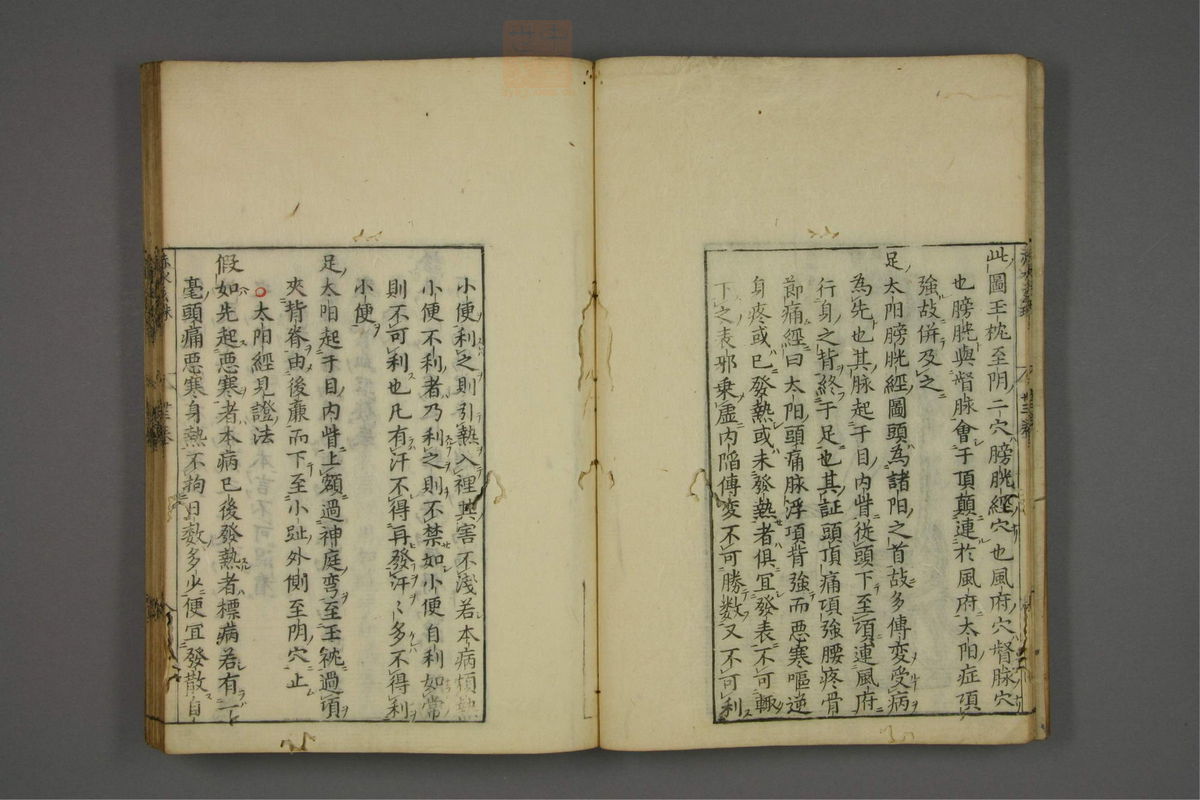 此圖玉枕至阴二穴膀胱經穴也風府穴督脉穴
也膀胱與督脉會于頂顛連於風府太阳症項
強故併及之
足太阳膀胱經圖頭為諸阳之首故多傳変受病
為先也其脉起于目内眥從頭下至項連風府
行身之背終于足也其証頭頂痛項強腰疼骨
節痛經曰太阳頭痛脉浮項背強而悪寒嘔逆
身疼或已發熱或未發熱者俱宜發表不可輙
下之表邪乗虚内陷傳変不可勝数又不可利
小便利之則引熱入裡其害不浅若本病煩熱
小便不利者乃利之則不禁如小便自利如常
則不可利也凡有汗不得再發汗〻多不得利
小便
足太阳起于目内眥上額過神庭弯至玉枕過項
夾背脊由後廉而下至小趾外側至阴穴止
太阳經見證法
假如先起悪寒者本病已後發熱者標病若有一
毫頭痛悪寒身熱不拘日数多少便宜發散自